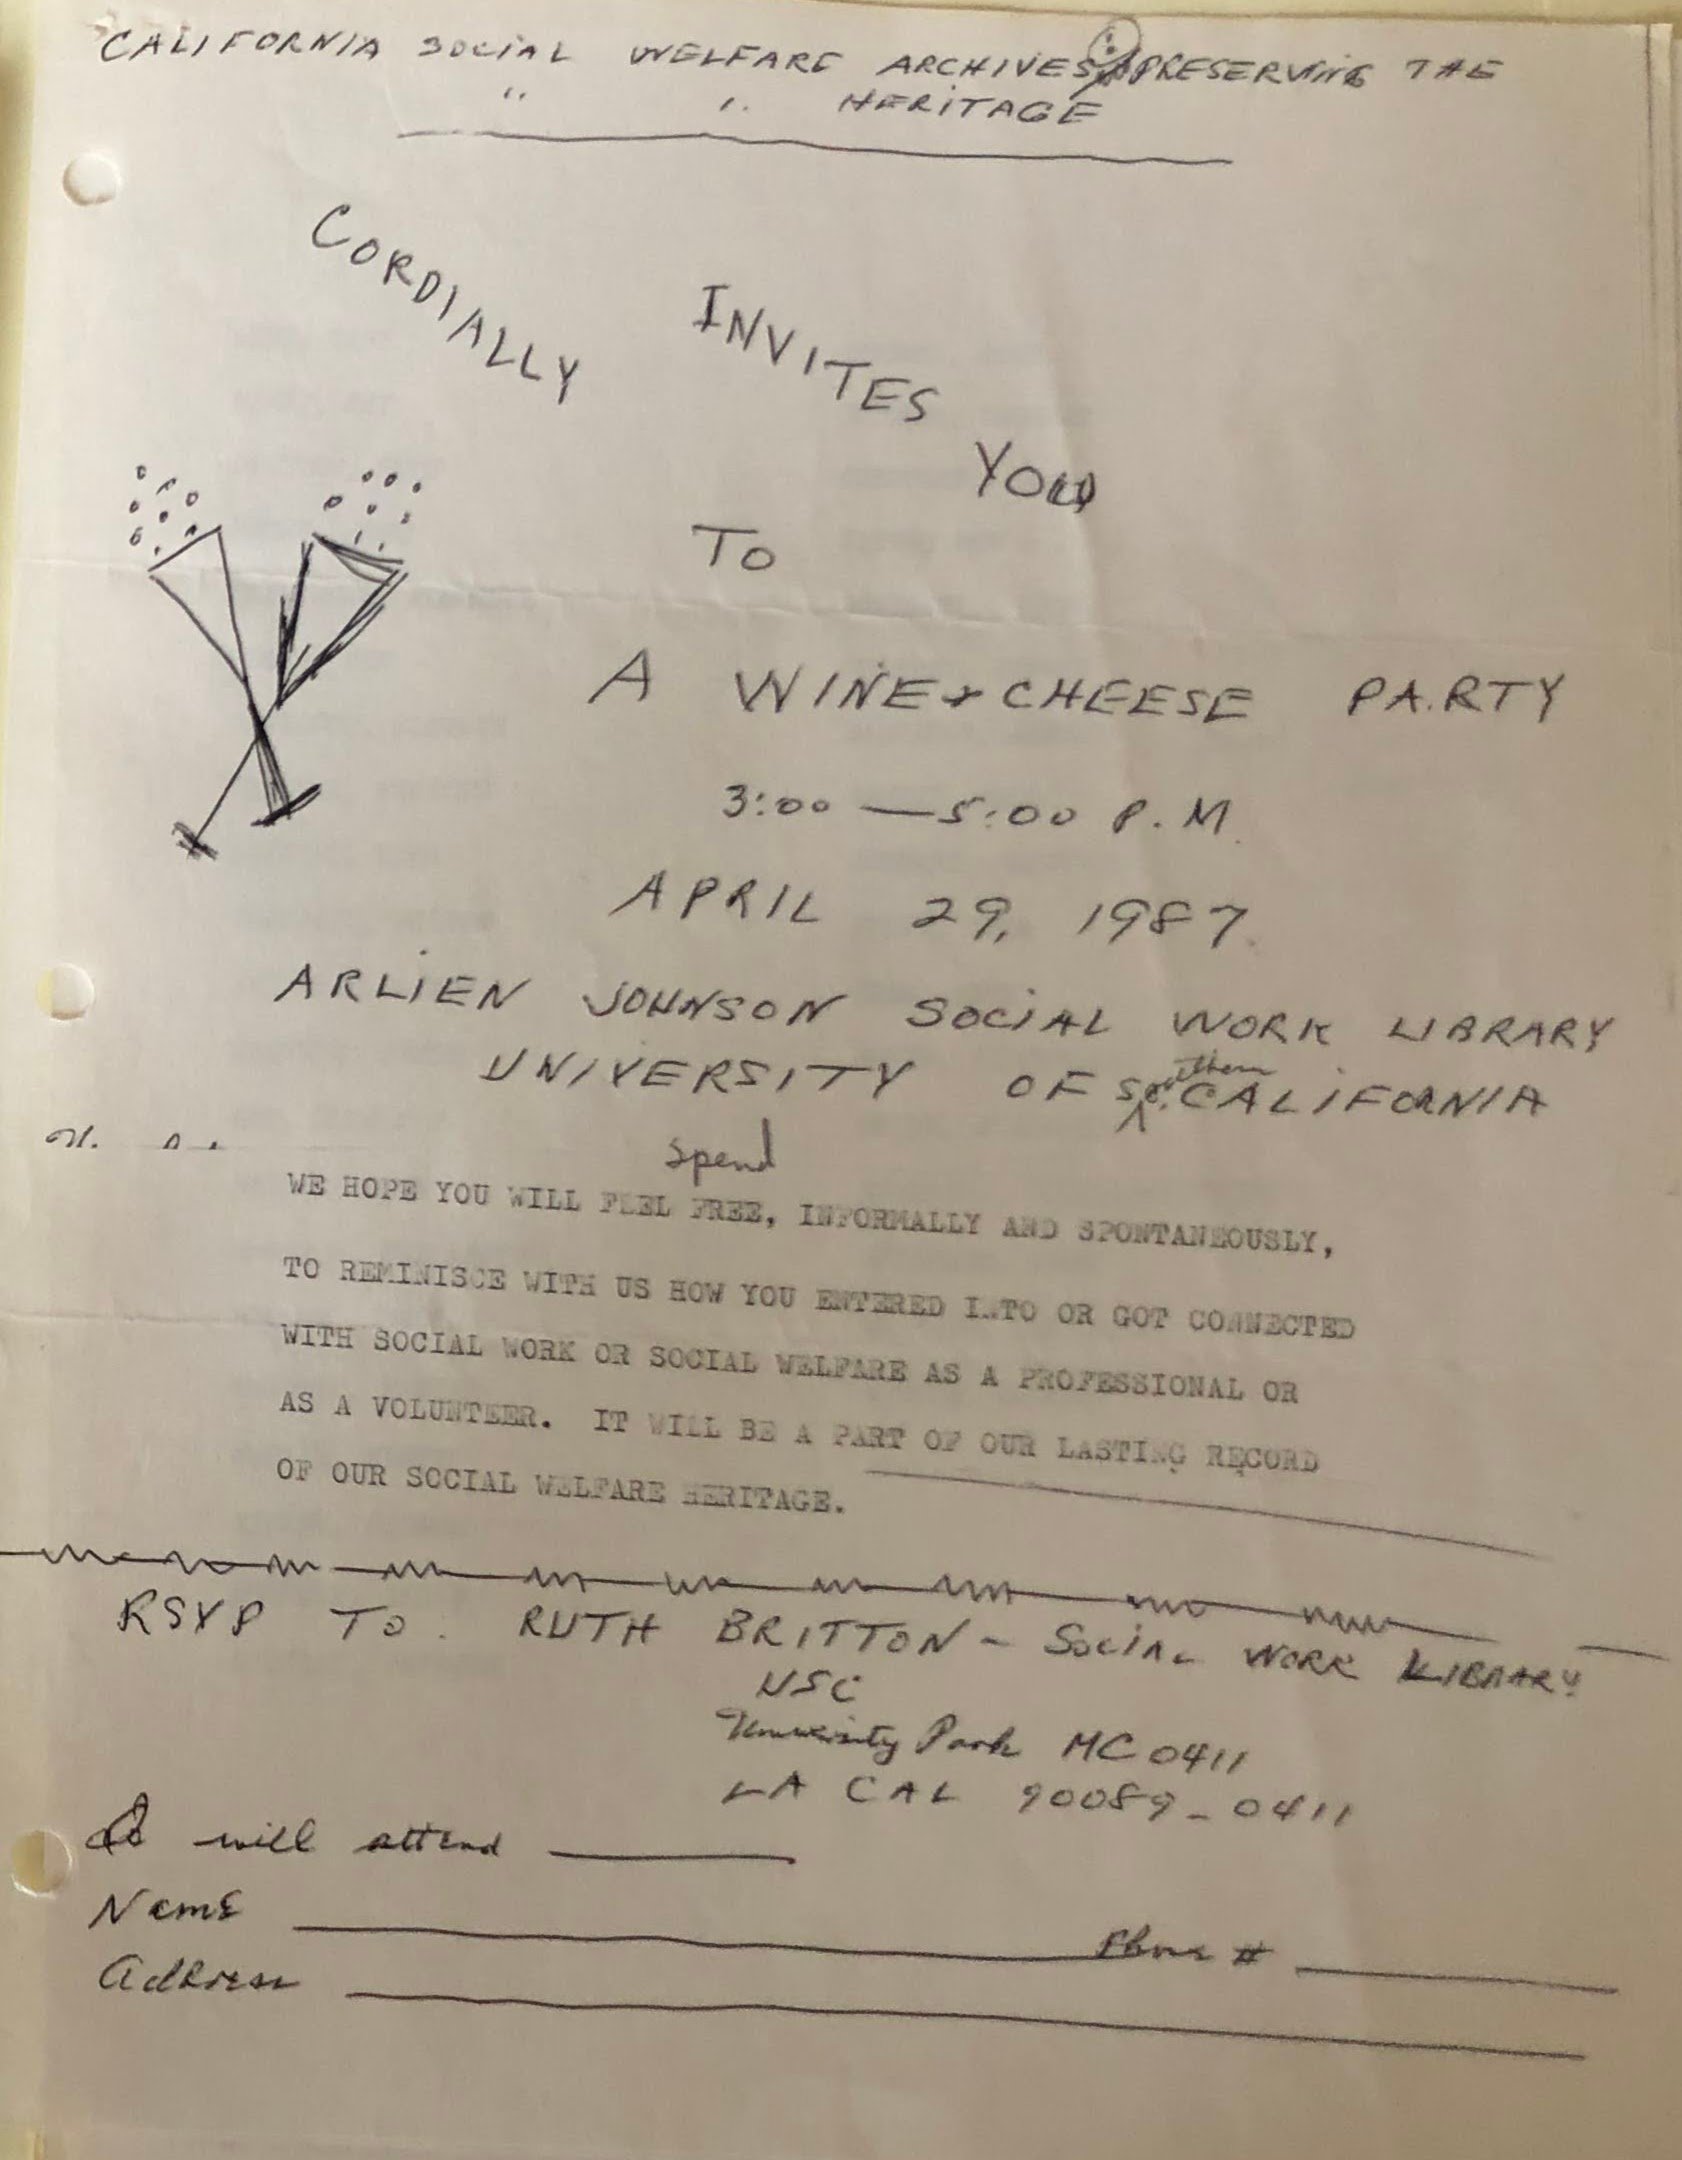 CALIFORNIA SOCIAL WELFARE ARCHIVES: PRESERVING THE
" " HERITAGE
CORDIALLY INVITES YOU
TO
A WINE & CHEESE PARTY
3:00 — 5:00 P.M.
APRIL 29, 1987
ARLIEN JOHNSON SOCIAL WORK LIBRARY
UNIVERSITY OF Southern CALIFORNIA
spend
WE HOPE YOU WILL FEEL FREE, INFORMALLY AND SPONTANEOUSLY,
TO REMINISCE WITH US HOW YOU ENTERED INTO OR GOT CONNECTED
WITH SOCIAL WORK OR SOCIAL WELFARE AS A PROFESSIONAL OR
AS A VOLUNTEER. IT WILL BE A PART OF OUR LASTING RECORD
OF OUR SOCIAL WELFARE HERITAGE.
RSVP TO. RUTH BRITTON - SOCIAL WORK LIBRARY
USC
University Park MC 0411
LA CAL 90089-0411
I will attend
Name Phone #
Address